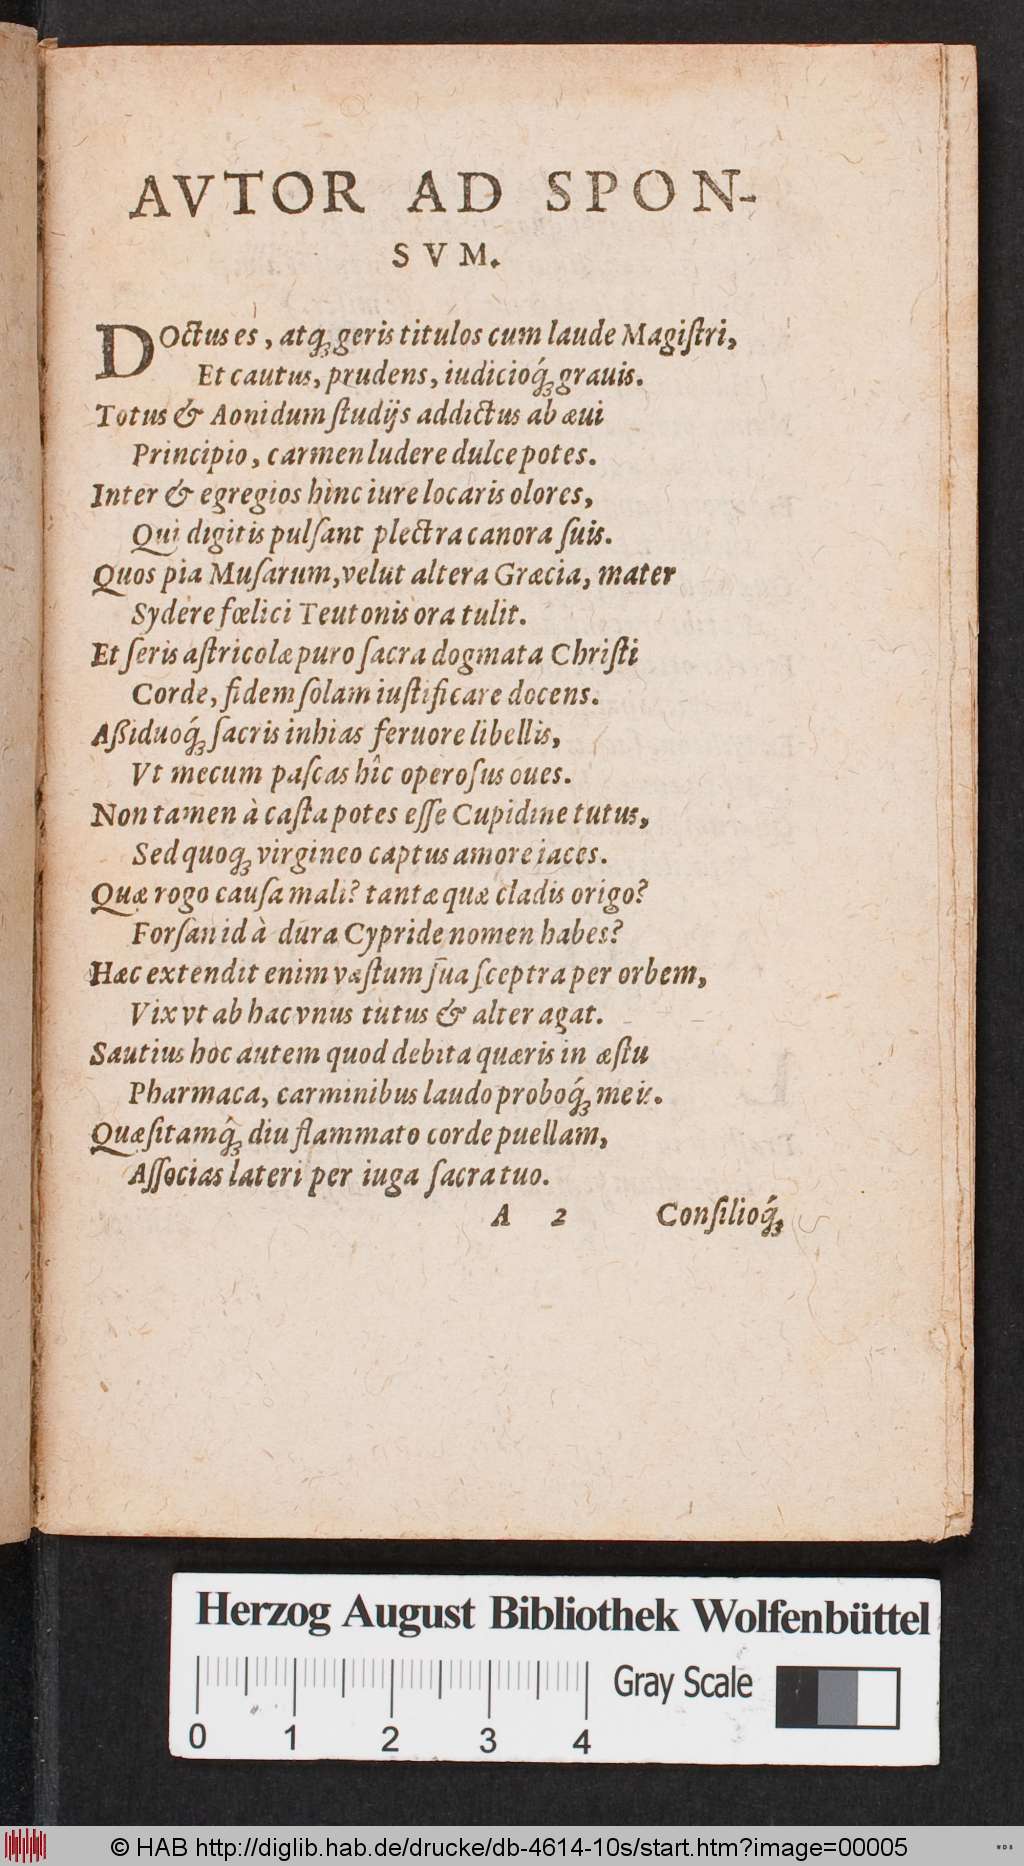 AVTOR AD SPON-
SVM.
DOctus es, atq́; geris titulos cum laude Magiſtri,
Et cautus, prudens, iudicioq́; grauis.
Totus & Aonidum ſtudijs addictus ab æui
Principio, carmen ludere dulce potes.
Inter & egregios hinc iure locaris olores,
Qui digitis pulſant plectra canora ſuis.
Quos pia Muſarum, velut altera Græcia, mater
Sydere fœlici Teutonis ora tulit.
Et ſeris aſtricolæ puro ſacra dogmata Chriſti
Corde, fidem ſolam iuſtificare docens.
Aßiduoq́; ſacris inhias feruore libellis,
Vt mecum paſcas hîc operoſus oues.
Non tamen à caſta potes eſſe Cupidine tutus,
Sed quoq; virgineo captus amore iaces.
Quæ rogo cauſa mali? tantæ quæ cladis origo?
Forſan id à dura Cypride nomen habes?
Hæc extendit enim vaſtum ſua ſceptra per orbem,
Vix vt ab hac vnus tutus & alter agat.
Sautius hoc autem quod debita quæris in æſtu
Pharmaca, carminibus laudo proboq́; meis.
Quæſitamq́; diu flammato corde puellam,
Aſſocias lateri per iuga ſacra tuo.
A 2 Conſilioq́;
Herzog August Bibliothek Wolfenbüttel
Gray Scale
0 1 2 3 4
© HAB http://diglib.hab.de/drucke/db-4614-10s/start.htm?image=00005